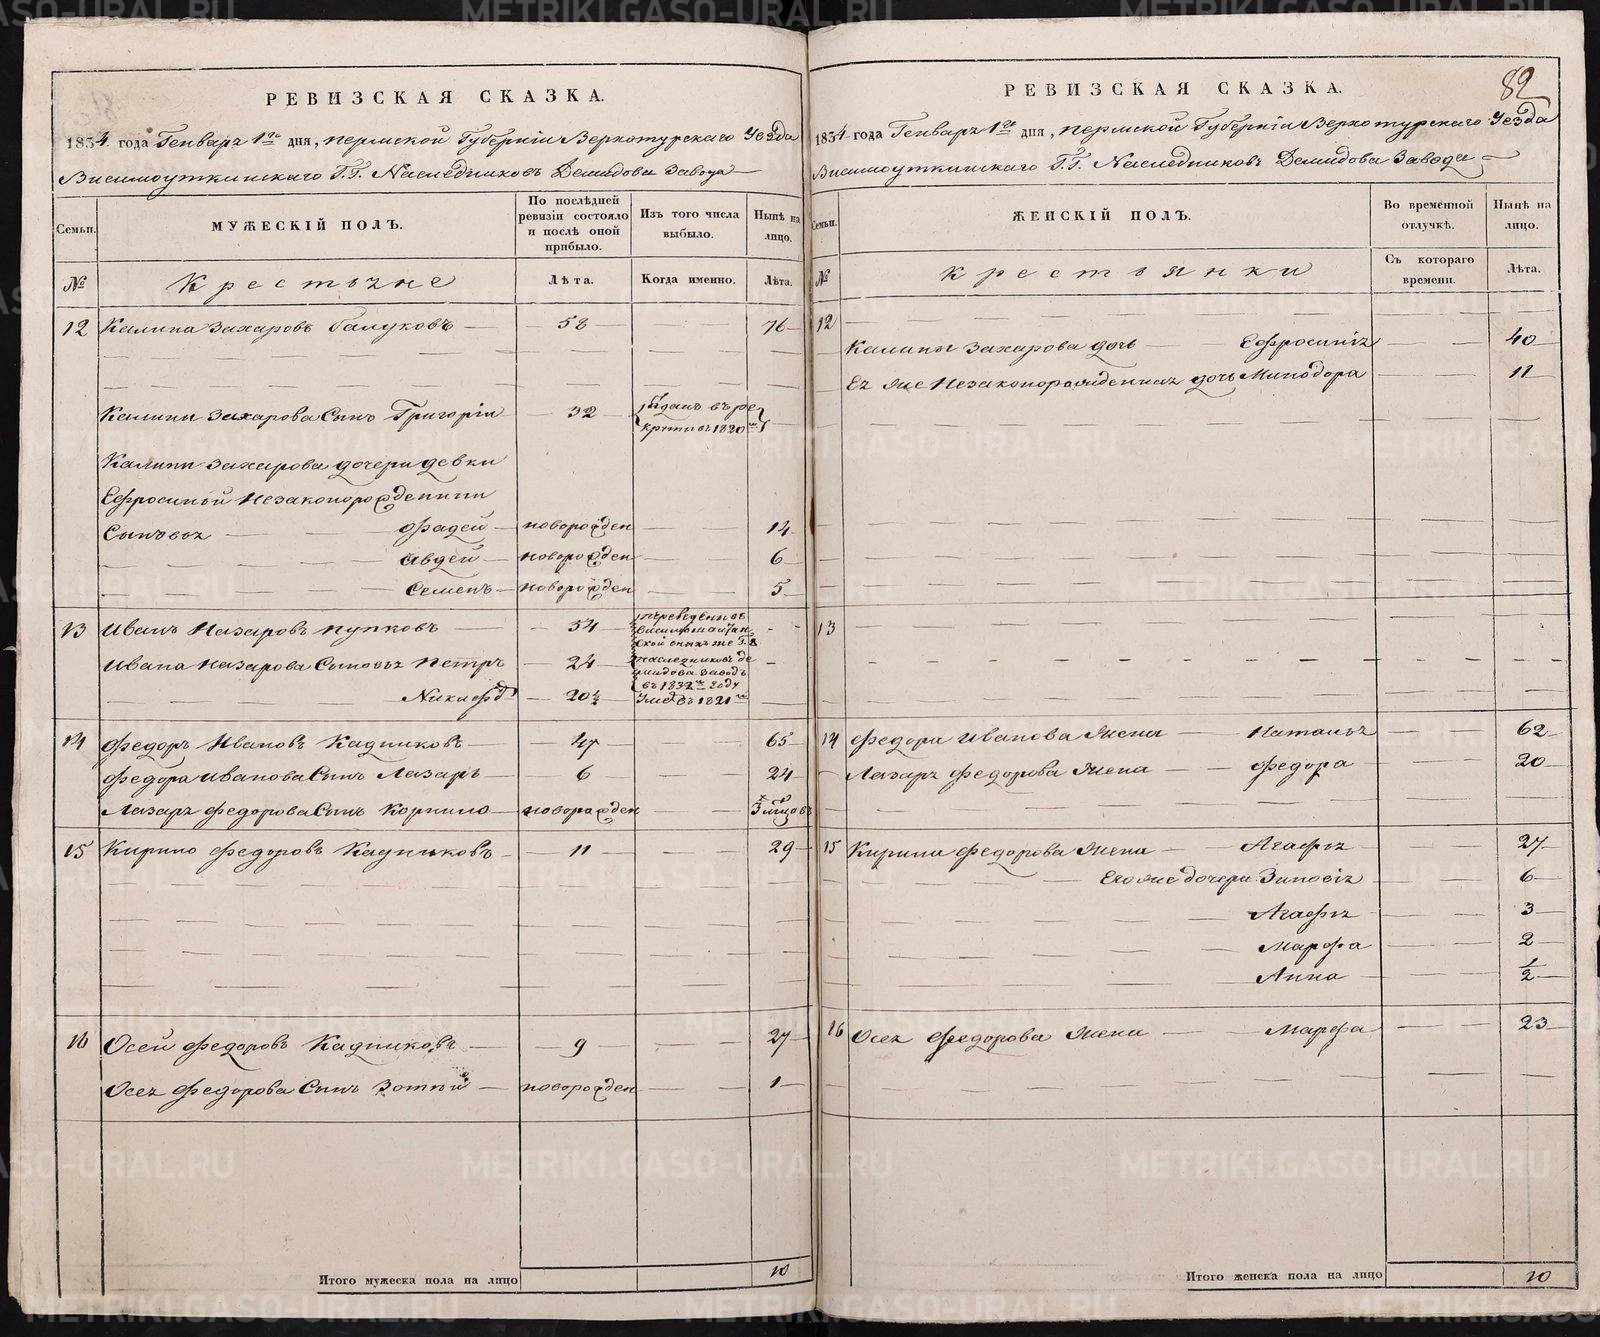 РЕВИЗСКАЯ СКАЗКА.
1834. года Генваря 1го дня, Пермской Губерніи Верхотурскаго Уезда
Висимоуткинскаго Г.Г. Наследниковъ Демидова Завода
Семьи.
МУЖЕСКІЙ ПОЛЪ.
По послѣдней ревизіи состояло и послѣ оной прибыло.
Изъ того числа выбыло.
Нынѣ на лицо.
№
Крестьяне
Лѣта.
Когда именно.
Лѣта.
12 Калина Захаровъ Балуковъ 58 76
Калины Захарова Сынъ Григорій 32 отданъ въ ре
круты въ 1820
Калины Захарова дочери девки
Ефросиньи Незаконорожденнии
Сыновья Фадей новорожден 14
Авдей новорожден 6
Семенъ новорожден 5
13 Иванъ Назаровъ Пупковъ 54 переведены въ
висимошайтан
ской оныхъ же Г.Г.
Ивана Назарова Сыновья Петръ 24 наследниковъ де
мидова заводъ
въ 1832 году
Никифоръ 20½ Умер въ 1821
14 Федоръ Ивановъ Кадниковъ 47 65
Федора Иванова Сынъ Лазарь 6 24
Лазаря Федорова Сынъ Корнило новорожден 3 м‑цовъ
15 Кирило Федоровъ Кадниковъ 11 29
16 Осей Федоровъ Кадниковъ 9 27
Осея Федорова Сынъ Зотъй новорожден 1
Итого мужеска пола на лицо 10
82
РЕВИЗСКАЯ СКАЗКА.
1834. года Генваря 1го дня, Пермской Губерніи Верхотурскаго Уезда
Висимоуткинскаго Г.Г. Наследниковъ Демидова Завода
Семьи.
ЖЕНСКІЙ ПОЛЪ.
Во временной отлучкѣ.
Нынѣ на лицо.
№
Крестьянки
Съ котораго времени.
Лѣта.
12
Калины Захарова дочь Ефросинія 40
Ея же Незаконорожденная дочь Минодора 11
13
14 Федора Иванова Жена Наталья 62
Лазаря Федорова Жена Федора 20
15 Кирила Федорова Жена Агафья 27
Его же дочери Зиновія 6
Агафья 3
Марфа 2
Анна ½
16 Осея Федорова Жена Марфа 23
Итого женска пола на лицо 10
METRIKI.GASO-URAL.RU